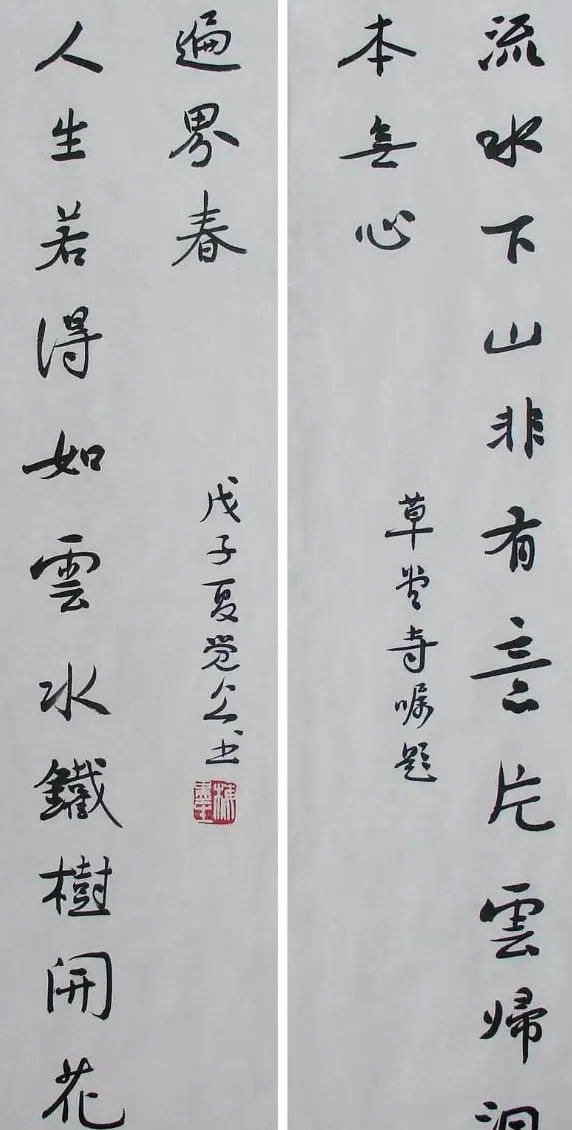 流水下山非有意片雲歸洞
本無心
草堂寺嘱題
人生若得如雲水鐵樹開花
遍界春
戊子夏觉书